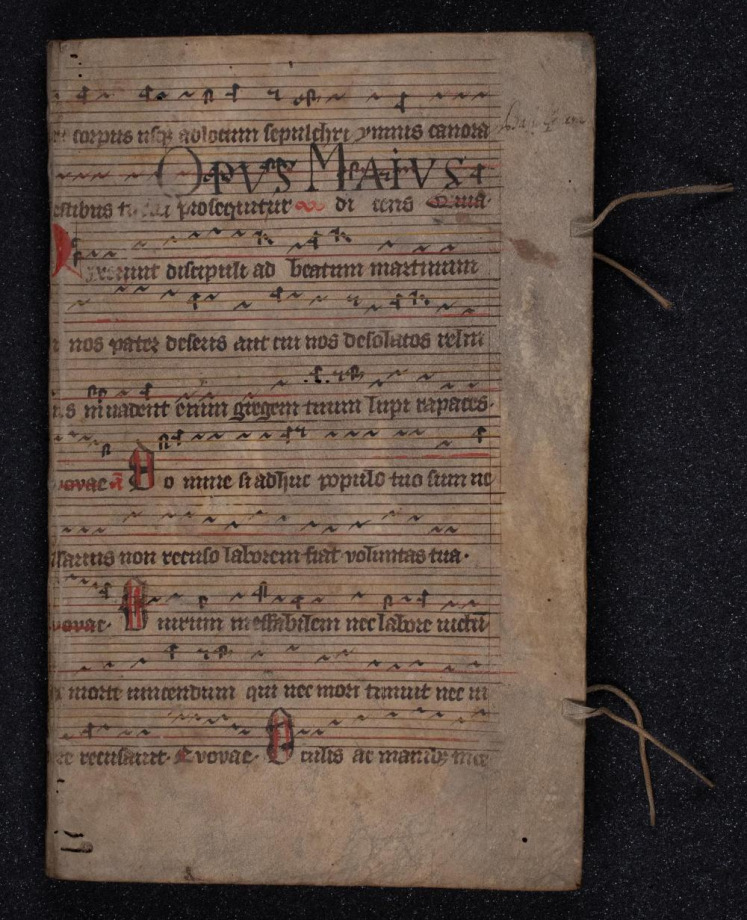 corpus usqȝ ad locum sepulchri ymnis canora
OPVS MAIVS
prosequitur
ixerunt discipuli ad beatum martinum
nos pater deseris aut cui nos desolatos relin
s inuadent enim gregem tuum lupi rapaces.
ovae a Do mine si adhuc populo tuo sum ne
ssarius non recuso laborem fiat voluntas tua.
vovae. O uirum ineffabilem nec labore uictū
morte uincendum qui nec mori timuit nec ui
re recusauit. Evovae. Oculis ac manibȝ